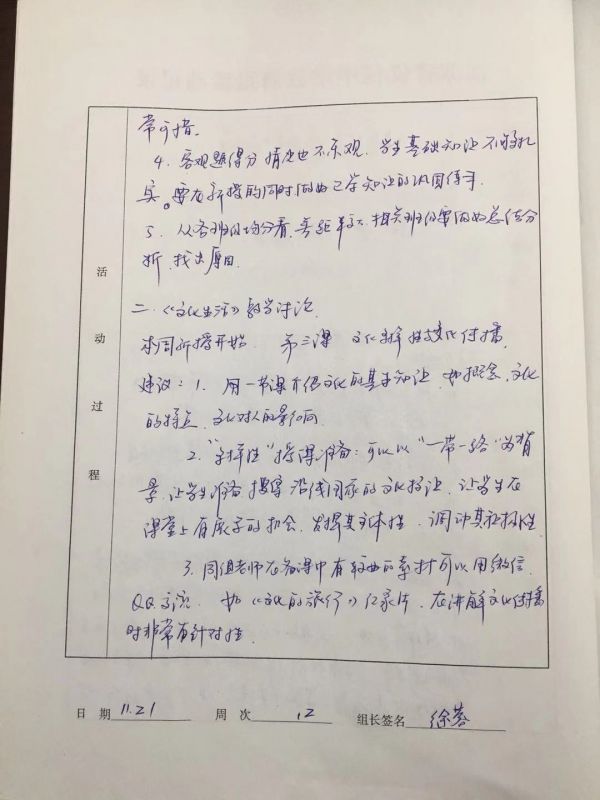 常可措。
4. 客观题得分情况也不乐观，学生基础知识不够扎
实。要在新授的同时加强已学知识的巩固
5. 从各班的均分看，差距较大，相关班级要总结分
析，找出原因。
二.《文化生活》教学讨论
本周新授开始 第三课 文化多样性与文化传播，
建议：1. 用一节课介绍文化的基本知识，如概念、文化
的特点、文化对人的影响
2. "多样性"授课准备：可以以"一带一路"为背
景，让学生准备搜集沿线国家的文化特征，让学生在
课堂上有展示的机会，发挥其主体性，调动其积极性
3. 同组老师在备课中有的素材可以用微信、
QQ交流. 如《文化的旅行》纪录片，在讲解文化传播
时非常有针对性
活动过程
日 期 11.21 周 次 12 组长签名 徐蓉